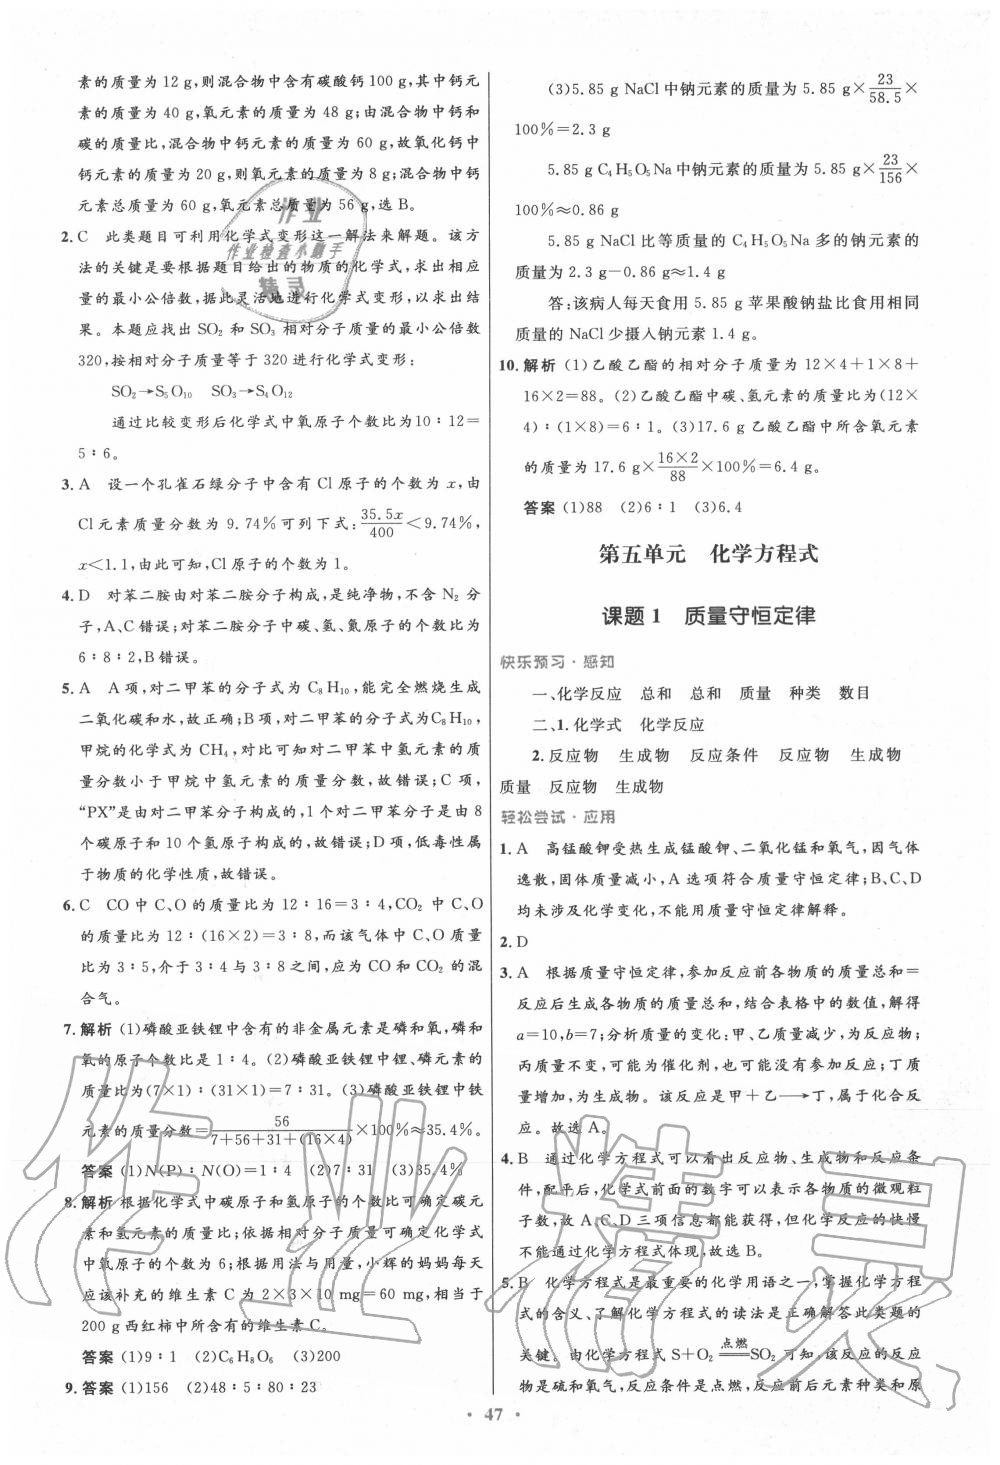 素的质量为 12 g,则混合物中含有碳酸钙 100 g,其中钙元
素的质量为 40 g,氧元素的质量为 48 g;由混合物中钙和
碳的质量比,混合物中钙元素的质量为 60 g,故氧化钙中
钙元素的质量为 20 g,则氧元素的质量为 8 g;混合物中钙
元素总质量为 60 g,氧元素总质量为 56 g,选 B。
2. C 此类题目可利用化学式变形这一解法来解题。该方
法的关键是要根据题目给出的物质的化学式,求出相应
量的最小公倍数,据此灵活地进行化学式变形,以求出结
果。本题应找出 SO₂ 和 SO₃ 相对分子质量的最小公倍数
320,按相对分子质量等于 320 进行化学式变形:
SO₂→S₅O₁₀ SO₃→S₄O₁₂
通过比较变形后化学式中氧原子个数比为10∶12=
5∶6。
3. A 设一个孔雀石绿分子中含有 Cl 原子的个数为 x,由
Cl元素质量分数为 9.74%可列下式:35.5x/400<9.74%,
x<1.1,由此可知,Cl 原子的个数为 1。
4. D 对苯二胺由对苯二胺分子构成,是纯净物,不含 N₂ 分
子,A、C 错误;对苯二胺分子中碳、氢、氮原子的个数比为
6∶8∶2,B 错误。
5. A A 项,对二甲苯的分子式为 C₈H₁₀,能完全燃烧生成
二氧化碳和水,故正确;B 项,对二甲苯的分子式为C₈H₁₀,
甲烷的化学式为 CH₄,对比可知对二甲苯中氢元素的质
量分数小于甲烷中氢元素的质量分数,故错误;C 项,
“PX”是由对二甲苯分子构成的,1 个对二甲苯分子是由 8
个碳原子和 10 个氢原子构成的,故错误;D 项,低毒性属
于物质的化学性质,故错误。
6. C CO 中 C、O 的质量比为 12∶16=3∶4,CO₂ 中 C、O
的质量比为 12∶(16×2)=3∶8,而该气体中 C、O 质量
比为 3∶5,介于 3∶4 与 3∶8 之间,应为 CO 和 CO₂ 的混
合气。
7. 解析 (1)磷酸亚铁锂中含有的非金属元素是磷和氧,磷和
氧的原子个数比是 1∶4。(2)磷酸亚铁锂中锂、磷元素的
质量比为(7×1)∶(31×1)=7∶31。(3)磷酸亚铁锂中铁
元素的质量分数=56/(7+56+31+(16×4))×100%≈35.4%。
答案 (1)N(P)∶N(O)=1∶4 (2)7∶31 (3)35.4%
8. 解析 根据化学式中碳原子和氢原子的个数比可确定碳元
素和氢元素的质量比;根据相对分子质量可确定化学式
中氧原子的个数为 6;根据用法与用量,小辉的妈妈每天
应该补充的维生素 C 为 2×3×10 mg=60 mg,相当于
200 g 西红柿中所含有的维生素 C。
答案 (1)9∶1 (2)C₆H₈O₆ (3)200
9. 答案 (1)156 (2)48∶5∶80∶23
(3)5.85 g NaCl 中钠元素的质量为 5.85 g×23/58.5×
100%=2.3 g
5.85 g C₄H₅O₅Na 中钠元素的质量为 5.85 g×23/156×
100%≈0.86 g
5.85 g NaCl 比等质量的 C₄H₅O₅Na 多的钠元素的
质量为 2.3 g-0.86 g≈1.4 g
答:该病人每天食用 5.85 g 苹果酸钠盐比食用相同
质量的 NaCl 少摄人钠元素 1.4 g。
10. 解析 (1)乙酸乙酯的相对分子质量为 12×4+1×8+
16×2=88。(2)乙酸乙酯中碳、氢元素的质量比为(12×
4)∶(1×8)=6∶1。(3)17.6 g 乙酸乙酯中所含氧元素
的质量为 17.6 g×16×2/88×100%=6.4 g。
答案 (1)88 (2)6∶1 (3)6.4
第五单元 化学方程式
课题 1 质量守恒定律
快乐预习·感知
一、化学反应 总和 总和 质量 种类 数目
二、1. 化学式 化学反应
2. 反应物 生成物 反应条件 反应物 生成物
质量 反应物 生成物
轻松尝试·应用
1. A 高锰酸钾受热生成锰酸钾、二氧化锰和氧气,因气体
逸散,固体质量减小,A 选项符合质量守恒定律;B、C、D
均未涉及化学变化,不能用质量守恒定律解释。
2. D
3. A 根据质量守恒定律,参加反应前各物质的质量总和=
反应后生成各物质的质量总和,结合表格中的数值,解得
a=10,b=7;分析质量的变化:甲、乙质量减少,为反应物;
丙质量不变,可能为催化剂,也可能没有参加反应;丁质
量增加,为生成物。该反应是甲+乙⟶丁,属于化合反
应。故选 A。
4. B 通过化学方程式可以看出反应物、生成物和反应条
件,配平后,化学式前面的数字可以表示各物质的微观粒
子数,故 A、C、D 三项信息都能获得,但化学反应的快慢
不能通过化学方程式体现,故选 B。
5. B 化学方程式是最重要的化学用语之一,掌握化学方程
式的含义、了解化学方程式的读法是正确解答此类题的
关键。由化学方程式 S+O₂ ==点燃== SO₂ 可知,该反应的反应
物是硫和氧气,反应条件是点燃,反应前后元素种类和原
· 47 ·
作业
作业检查小助手
精灵
作业精灵